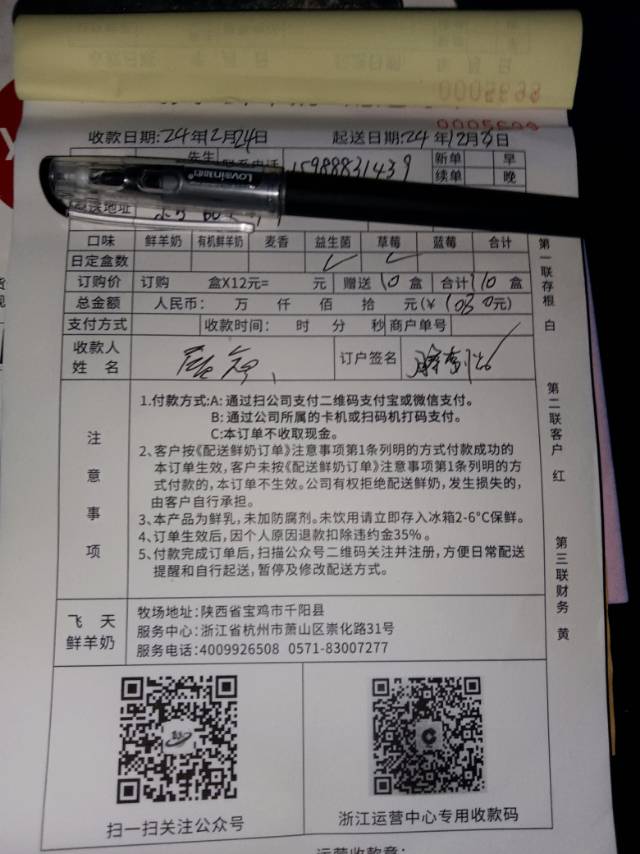 0005698
0005699
收款日期:24年12月24日 起送日期:24年12月 日
先生 15988831439 新单 早
续单 晚
起送地址
口味 鲜羊奶 有机鲜羊奶 麦香 益生菌 草莓 蓝莓 合计
日定盒数 ✓ ✓
订购价 订购 盒X12元= 元 赠送10盒 合计110盒
总金额 人民币: 万 仟 佰 拾 元(¥1030元)
支付方式 收款时间: 时 分 秒 商户单号
收款人姓名 订户签名
注意事项
1.付款方式:A:通过扫公司支付二维码支付宝或微信支付。
B:通过公司所属的卡机或扫码机打码支付。
C:本订单不收取现金。
2、客户按《配送鲜奶订单》注意事项第1条列明的方式付款成功的
本订单生效,客户未按《配送鲜奶订单》注意事项第1条列明的方
式付款的,本订单不生效。公司有权拒绝配送鲜奶,发生损失的,
由客户自行承担。
3、本产品为鲜乳,未加防腐剂。未饮用请立即存入冰箱2-6°C保鲜。
4、订单生效后,因个人原因退款扣除违约金35%。
5、付款完成订单后,扫描公众号二维码关注并注册,方便日常配送
提醒和自行起送,暂停及修改配送方式。
飞天
鲜羊奶
牧场地址:陕西省宝鸡市千阳县
服务中心:浙江省杭州市萧山区崇化路31号
服务电话:4009926508 0571-83007277
扫一扫关注公众号
浙江运营中心专用收款码
运营收款章:
第一联存根 白
第二联客户 红
第三联财务 黄